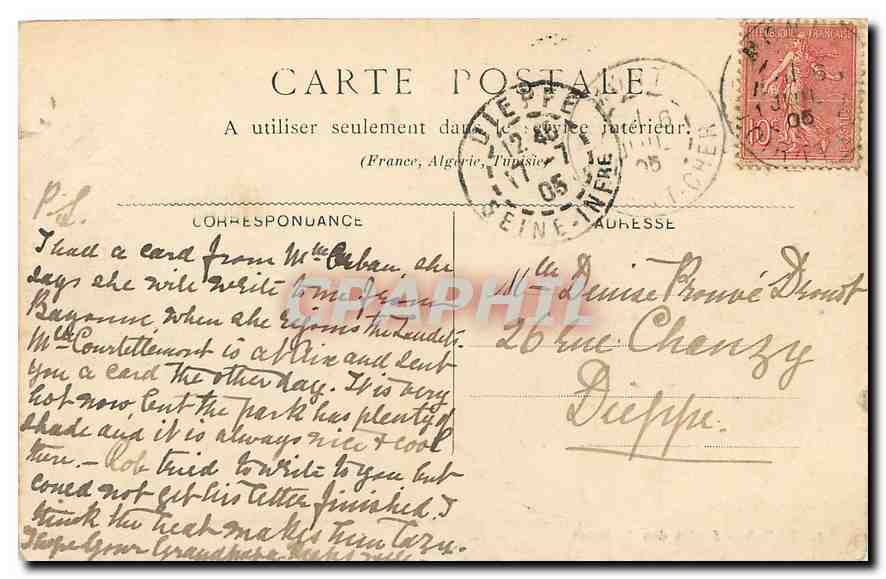 RÉPUBLIQUE FRANÇAISE
10c
CARTE POSTALE
A utiliser seulement dans le service intérieur.
(France, Algérie, Tunisie)
DIEPPE
12 45
17 -7
05
SEINE-INFRE
JUIL
05
ET-CHER
CORRESPONDANCE
ADRESSE
P.S.
I had a card from Mlle Orban, she
says she will write to me from
Bayonne, when she rejoins the Landets.
Mlle Courtellemont is at Aix and sent
you a card the other day. It is very
hot now, but the park has plenty of
shade and it is always nice & cool
there. – Bob tried to write to you but
could not get his letter finished. I
think the heat makes him lazy.
I hope your Grandpapa keeps well
Mlle Denise Prouvé Drouot
26 rue Chanzy
Dieppe.
GRAPHIL